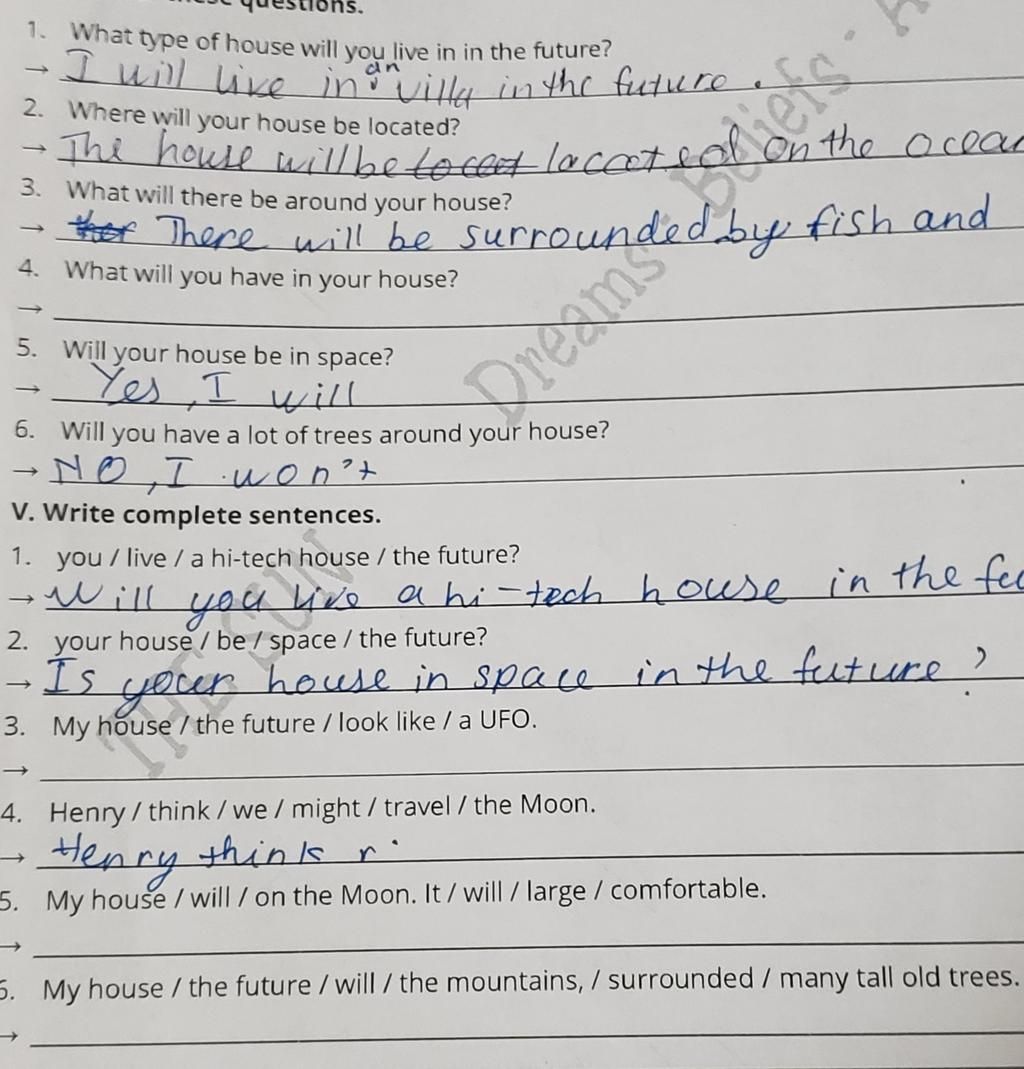 questions.
1. What type of house will you live in in the future?
→ I will live in an villa in the future .
2. Where will your house be located?
→ The house will be locat loccoted on the ocean
3. What will there be around your house?
→ ther There will be surrounded by fish and
4. What will you have in your house?
→
5. Will your house be in space?
→ Yes, I will
6. Will you have a lot of trees around your house?
→ NO, I won't
V. Write complete sentences.
1. you / live / a hi-tech house / the future?
→ Will you live a hi-tech house in the
2. your house / be / space / the future?
→ Is your house in space in the future ?
3. My house / the future / look like / a UFO.
→
4. Henry / think / we / might / travel / the Moon.
→ Henry think
5. My house / will / on the Moon. It / will / large / comfortable.
→
6. My house / the future / will / the mountains, / surrounded / many tall old trees.
→
THE SUN Dreams · Beliefs ·